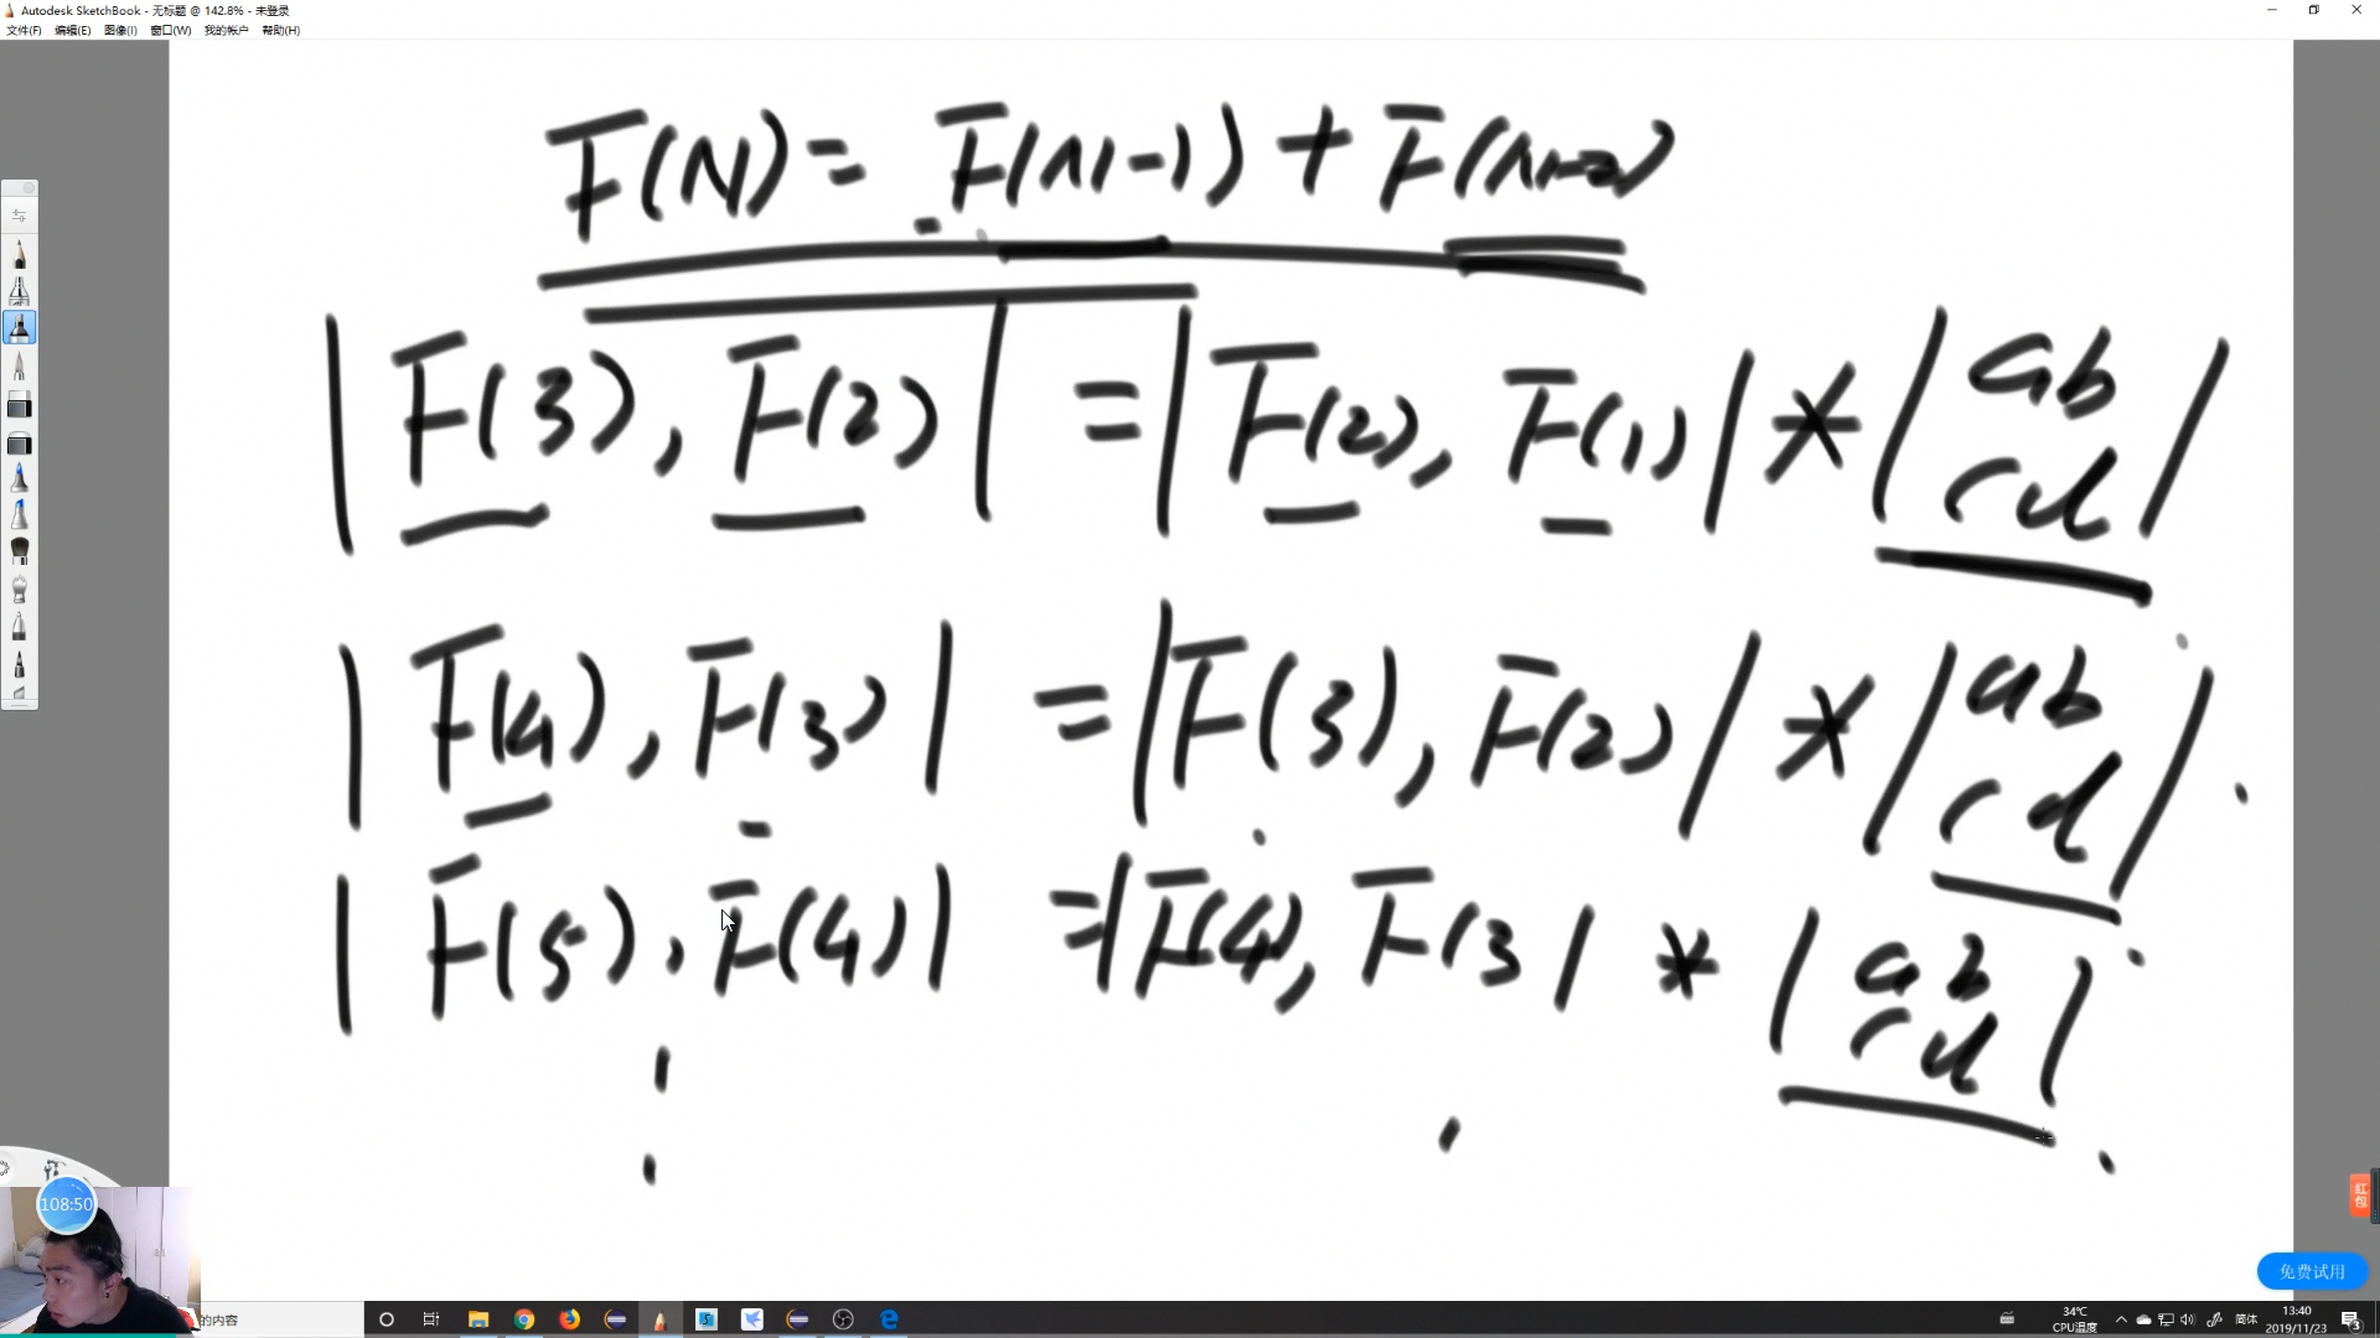 Autodesk SketchBook - 无标题 @ 142.8% - 未登录
文件(F) 编辑(E) 图像(I) 窗口(W) 我的帐户 帮助(H)
F(N) = F(N-1) + F(N-2)
| F(3), F(2) | = | F(2), F(1) | * | a b
c d |
| F(4), F(3) | = | F(3), F(2) | * | a b
c d |
| F(5), F(4) | = | F(4), F(3 | * | a b
c d |
108:50
红包
免费试用
的内容
34℃
CPU温度
简体
13:40
2019/11/23
3